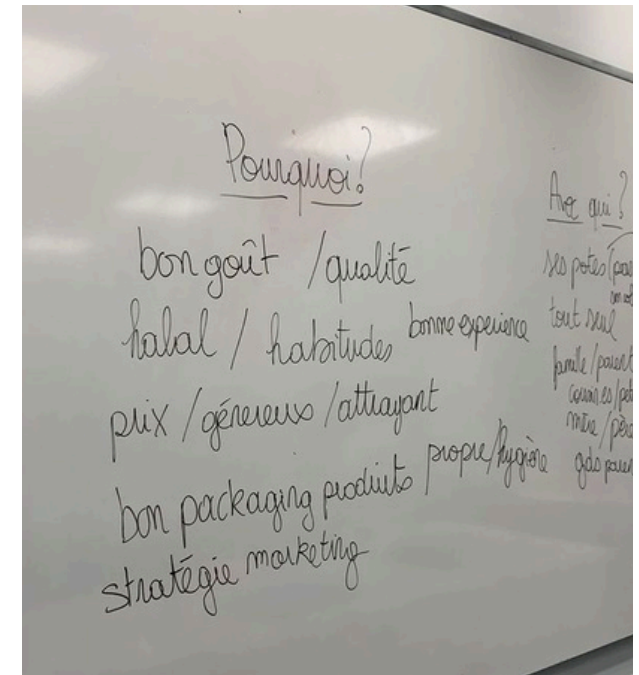 Pourquoi?
bon goût / qualité
halal / habitudes bonne experience
prix / génereux / attrayant
bon packaging produits propre/hygiène
stratégie marketing
Avec qui?
ses potes
tout seul
famille / parent
mère / père
gds